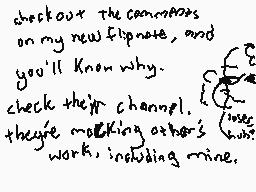 check out the comments
on my new flipnote, and
you'll know why.
check their channel.
they're mocking other's
work, including mine.
loser
huh?